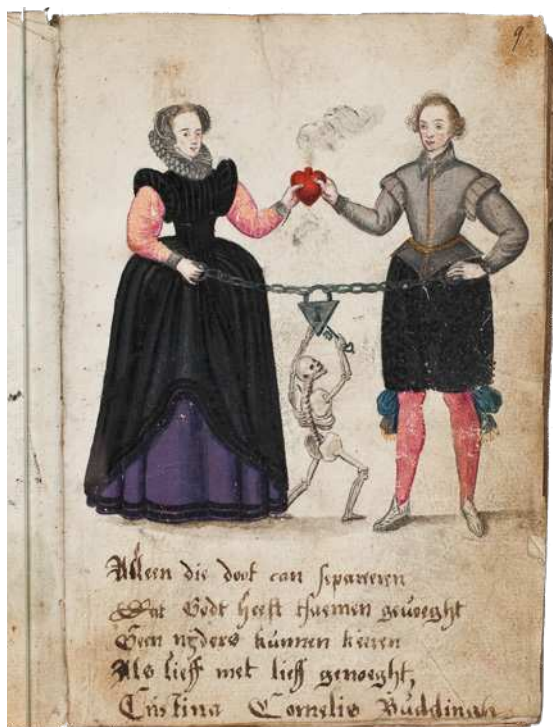 9
Alleen die doot can separeren
Dat Godt heeft tsaemen gevoeght
Geen nyders kunnen keeren
Als lieff met lieff genoeght,
Cristina Cornelis Buddingh